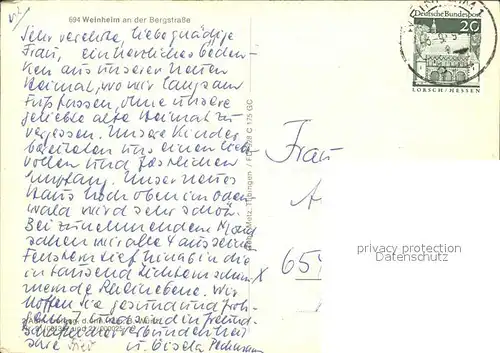 694 Weinheim an der Bergstraße
Sehr verehrte, liebe gnädige
Frau, ein herzliches Geden-
ken aus unserer neuen
Heimat, wo wir langsam
Fuß fassen, ohne unsere
geliebte alte Heimat zu
vergessen. Unsere Kinder
bereiteten uns einen liebe
vollen und festlichen
Empfang. Unser neues
Haus hoch oben im oden-
wald wird sehr schön.
Bei zunehmendem Mond
sahen wir alle 4 aus seinen
Fenstern tief hinab in die
in tausend Lichtern schim
mernde Rheinebene. Wir
hoffen Sie gesund und froh
und sind in Freund-
verbundenheit
Ihre
u. Gisela
Deutsche Bundespost
20
LORSCH/HESSEN
Frau
A
65
privacy protection
www.ak-ansichtskarten.de